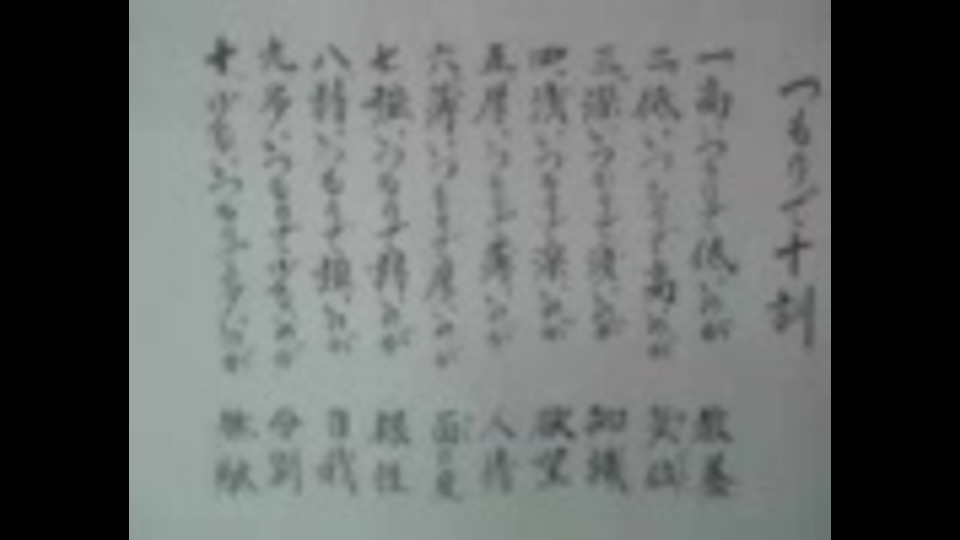 つもりで十訓
一 高いつもりで低いのが 教養
二 低いつもりで高いのが 気位
三 深いつもりで浅いのが 知識
四 浅いつもりで深いのが 欲望
五 厚いつもりで薄いのが 人情
六 薄いつもりで厚いのが 面の皮
七 強いつもりで弱いのが 根性
八 弱いつもりで強いのが 自我
九 多いつもりで少ないのが 分別
十 少ないつもりで多いのが 無駄